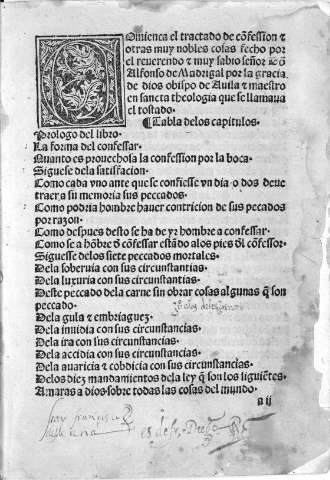 Comiença el tractado de cõfession ⁊
otras muy nobles cosas fecho por
el reuerendo ⁊ muy sabio señor
Alfonso de Madrigal por la gracia
de dios obispo de Auila ⁊ maestro
en sancta theologia que se llamaua
el tostado.
¶Tabla delos capitulos.
Prologo del libro.
La forma del confessar.
Quanto es prouechosa la confession por la boca.
Siguese dela satisfacion.
Como cada vno ante que se confiesse vn dia o dos deue
traer a su memoria sus peccados.
Como podria hombre hauer contricion de sus pecados
por razon.
Como despues desto se ha de yr hombre a confessar.
Como se a hõbre õ cõfessar estãdo alos pies õl cõfessor.
Siguesse delos siete peccados mortales.
Dela soberuia con sus circunstantias.
Dela luxuria con sus circunstantias.
Deste peccado dela carne sin obrar cosas algunas q̃ son
peccado.
Dela gula ⁊ embriaguez.
Dela inuidia con sus circunstancias.
Dela ira con sus circunstancias.
Dela accidia con sus circunstancias.
Dela auaricia ⁊ cobdicia con sus circunstancias.
Delos diez mandamientos dela ley q̃ son los siguiẽtes.
Amaras a dios sobre todas las cosas del mundo.
a ij
fray francisco
es de fr Diego